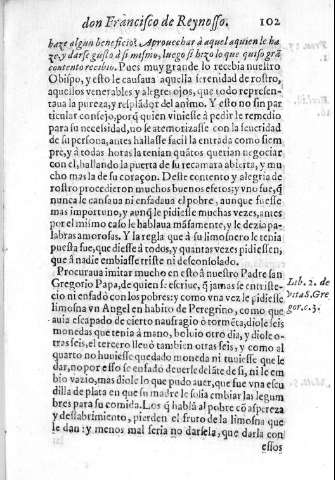 don Francisco de Reynosso. 102
haze algun beneficio? Aprouechar à aquel aquien le ha
ze, y darse gusto â si mismo, luego si hizo lo que quiso grã
contento recibio. Pues muy grande lo recebia nuestro
Obispo, y esto le causaua aquella serenidad de rostro,
aquellos venerables y alegres ojos, que todo represen-
taua la pureza, y resplãdor del animo. Y esto no sin par
ticular consejo, porq̃ quien viniesse à pedir le remedio
para su necessidad, no se atemorizasse con la seueridad
de su persona, antes hallasse facil la entrada como siem
pre, y à todas horas la tenian quãtos querian negociar
con el, hallando la puerta de su recamara abierta, y mu
cho mas la de su coraçon. Deste contento y alegria de
rostro procedieron muchos buenos efetos; y vno fue, q̃
nunca le cansaua ni enfadaua el pobre, aunque fuesse
mas importuno, y aunq̃ le pidiesse muchas vezes, antes
por el mismo caso le hablaua mãsamente, y le dezia pa-
labras amorosas. Y la regla que à su limosnero le tenia
puesta fue, que diesse à todos, y quantas vezes pidiessen,
que à nadie embiasse triste ni desconsolado.
Procuraua imitar mucho en esto â nuestro Padre san
Gregorio Papa, de quien se escriue, q̃ jamas se entriste-
cio ni enfadó con los pobres: y como vna vez le pidiesse
limosna vn Angel en habito de Peregrino, como que
auia escapado de cierto naufragio ò tormẽta, diole seis
monedas que tenia à mano, boluio otro dia, y diole o-
tras seis, el tercero lleuò tambien otras seis, y como al
quarto no huuiesse quedado moneda ni tuuiesse que le
dar, no por esso se enfadò de verle delãte de si, ni le em
bio vazio, mas diole lo que pudo auer, que fue vna escu
dilla de plata en que su madre le solia embiar las legum
bres para su comida. Los q̃ hablã al pobre cõ aspereza
y dessabrimiento, pierden el fruto de la limosna que
le dan: y menos mal seria no darsela, que darla con
essos
Lib. 2. de
vita S. Gre
gor. c. 3.